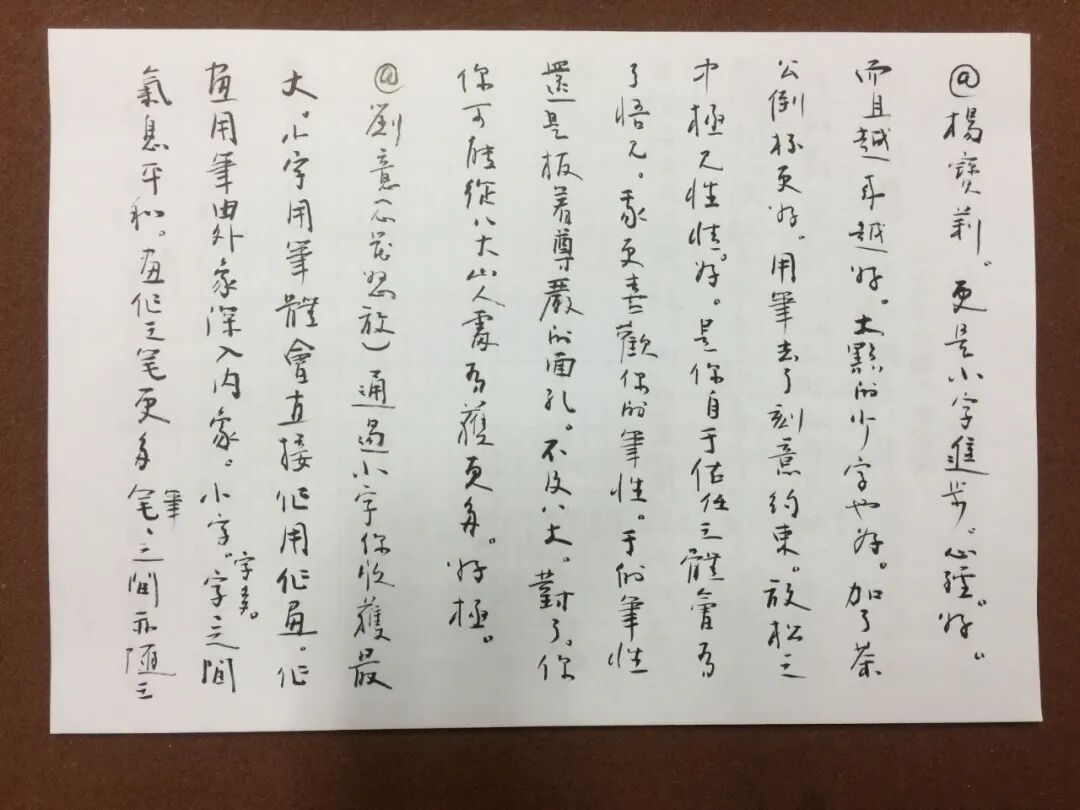 @楊寶莉，更是小字進步。心經。好。
而且越平越好。大點的少字也好。加了茶
公倒杯更好。用筆去了刻意約束。放松之
中極見性情。好。是你自于任之體會有
了悟見。我更喜歡你的筆性。于的筆性
還是板着尊嚴的面孔。不及八大。對了。你
你可能從八大山人處有獲更多。好極。
@劉意(不需怒放)通過小字你收獲最
大。小字用筆體會直接作用作画。作
画用筆由外象深入内象。小字。字多。字之間
氣息平和。画作之笔更多笔筆、之間亦隨之